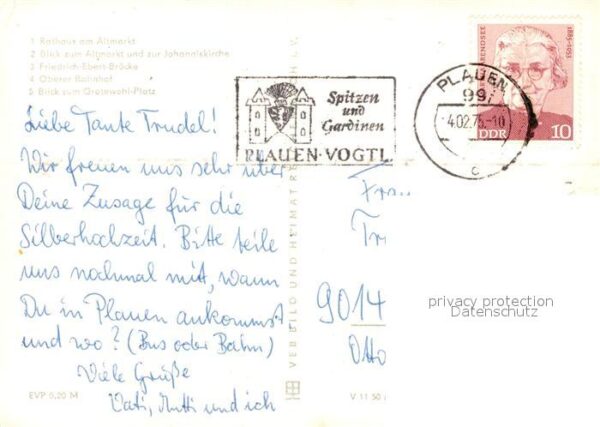 1 Rathaus am Altmarkt
2 Blick zum Altmarkt und zur Johanniskirche
3 Friedrich-Ebert-Brücke
4 Oberer Bahnhof
5 Blick zum Grotewohl-Platz
Liebe Tante Trudel!
Wir freuen uns sehr über
Deine Zusage für die
Silberhochzeit. Bitte teile
uns nochmal mit, wann
Du in Plauen ankommst
und wo? (Bus oder Bahn)
Viele Grüße
Vati, Mutti und ich
EVP 0,20 M
VEB BILD UND HEIMAT
V 11 50
Spitzen
und
Gardinen
PLAUEN·VOGTL.
PLAUEN
99
4.02.75-10
c
1885-1953
DDR
10
Frau
Tr
9014
Otto
privacy protection
Datenschutz